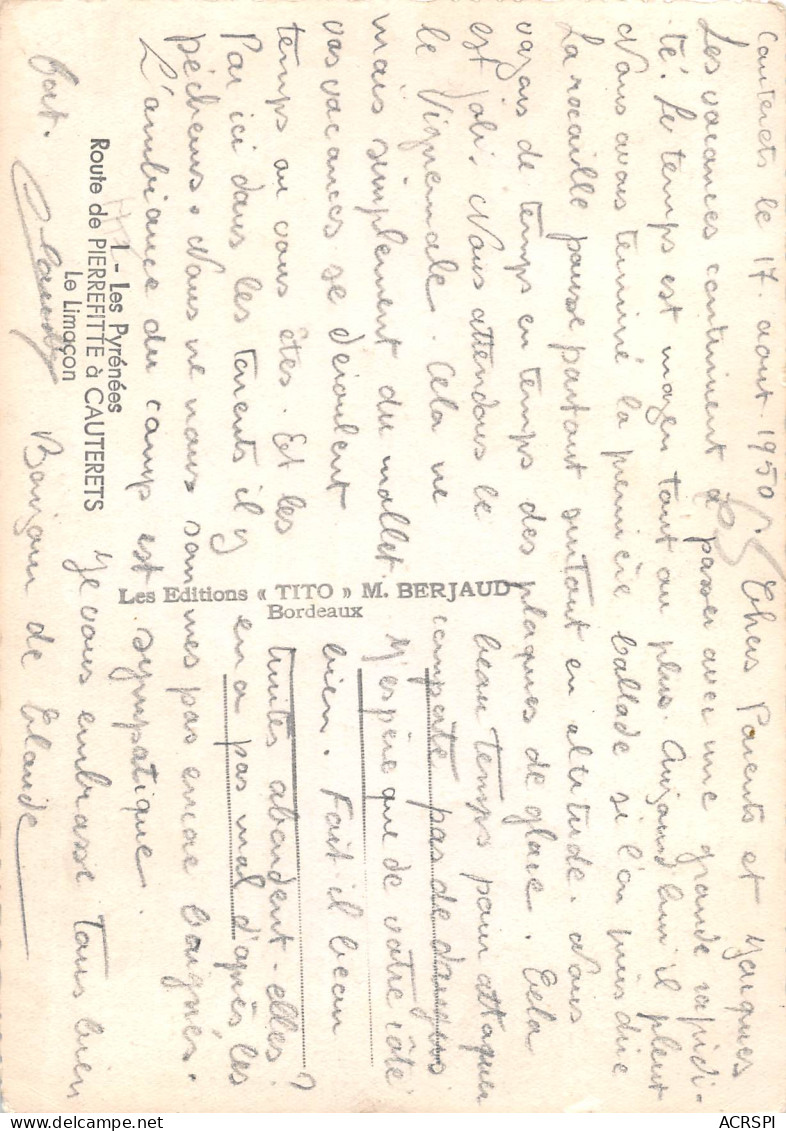 Cauterets le 17. aout 1950. Chers Parents et Jacques
Les vacances continuent à passer avec une grande rapidi-
té. Le temps est moyen tout au plus. Aujourd'hui il pleut
Nous avons terminé la première ballade si l'on puis dire
La rocaille pousse partout surtout en altitude. Nous
voyons de temps en temps des plaques de glace. Cela
est joli. Nous attendons le beau temps pour attaquer
le Vignemale. Cela ne comporte pas de dangers
mais simplement du mollet J'espère que de votre côté
vos vacances se déroulent bien. Fait-il beau
temps ou vous êtes. Et les truites abondent-elles?
Par ici dans les torrents il y en a pas mal d'après les
pêcheurs. Nous ne nous sommes pas encore baignés.
L'ambiance du camp est sympatique.
Je vous embrasse tous bien
fort. Claude Bonjour de Claude
1 - Les Pyrénées
Route de PIERREFITTE à CAUTERETS
Le Limaçon
Les Editions « TITO » M. BERJAUD
Bordeaux
ACRSPI